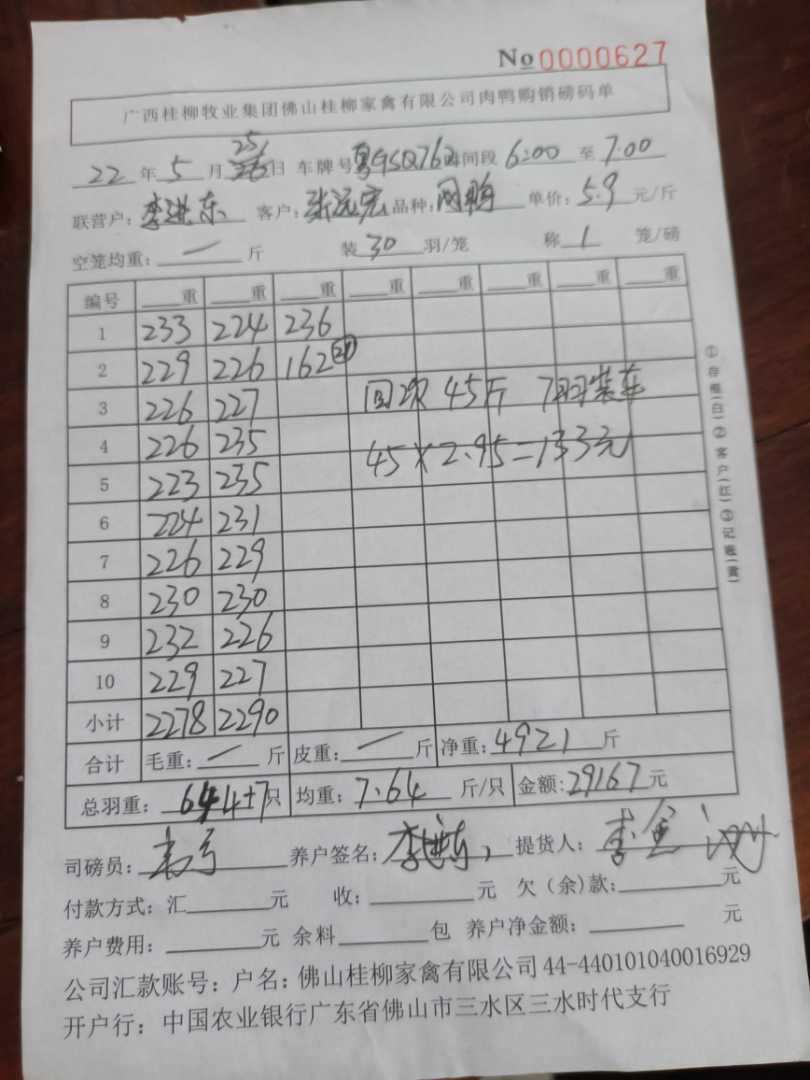 No 0000627
广西桂柳牧业集团佛山桂柳家禽有限公司肉鸭购销磅码单
22 年 5 月 25 日 车牌号 粤G5Q762 时间段 6:00 至 7:00
联营户: 李进东 客户: 张远宏 品种: 网鸭 单价: 5.9 元/斤
空笼均重: — 斤 装 30 羽/笼 称 1 笼/磅
编号 重 重 重 重 重 重 重 重
1 233 224 236
2 229 226 162 21
3 226 227 回次 45斤 7羽装车
4 226 235 45×2.95=133元
5 223 235
6 224 231
7 226 229
8 230 230
9 232 226
10 229 227
小计 2278 2290
合计 毛重: — 斤 皮重: — 斤 净重: 4921 斤
总羽重: 644+7 只 均重: 7.64 斤/只 金额: 29167 元
司磅员: 养户签名: 李进东 提货人: 李金
付款方式: 汇 元 收: 元 欠(余)款: 元
养户费用: 元 余料 包 养户净金额: 元
公司汇款账号: 户名: 佛山桂柳家禽有限公司 44-440101040016929
开户行: 中国农业银行广东省佛山市三水区三水时代支行
①存根(白)②客户(红)③记账(黄)